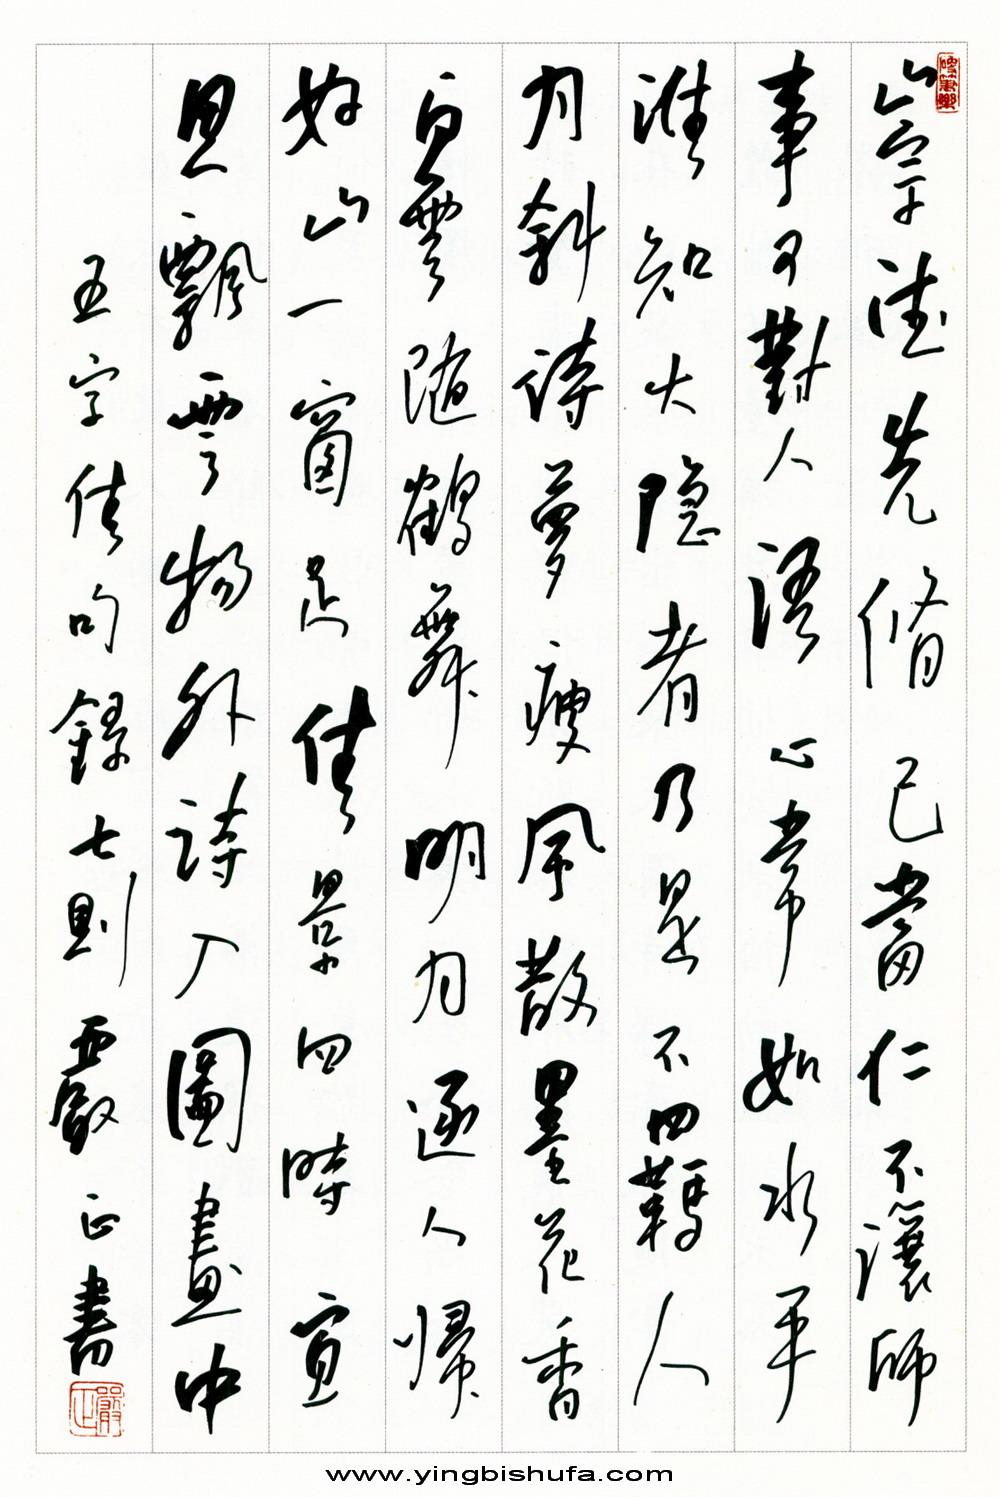 崇德先脩己當仁不讓師
事可對人語心常如水平
誰知大隐者乃是不羈人
月斜詩夢瘦風散墨花香
白雲随鶴舞明月逐人歸
好山一窗足佳景四時宜
思飄雲物外詩入圖畫中
五字佳句錄七則嚴正書
嚴正
www.yingbishufa.com